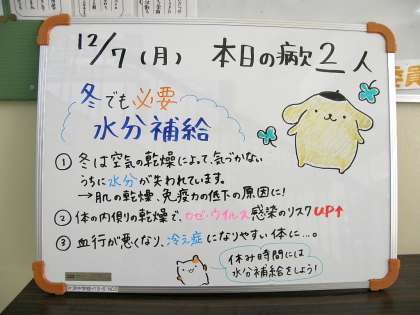 12/7(月) 本日の病欠 2人
冬でも必要
水分補給
① 冬は空気の乾燥によって、気づかない
うちに水分が失われています。
→肌の乾燥、免疫力の低下の原因に!
② 体の内側の乾燥で、カゼ・ウイルス感染のリスクUP↑
③ 血行が悪くなり、冷え症になりやすい体に…。
休み時間には
水分補給をしよう!